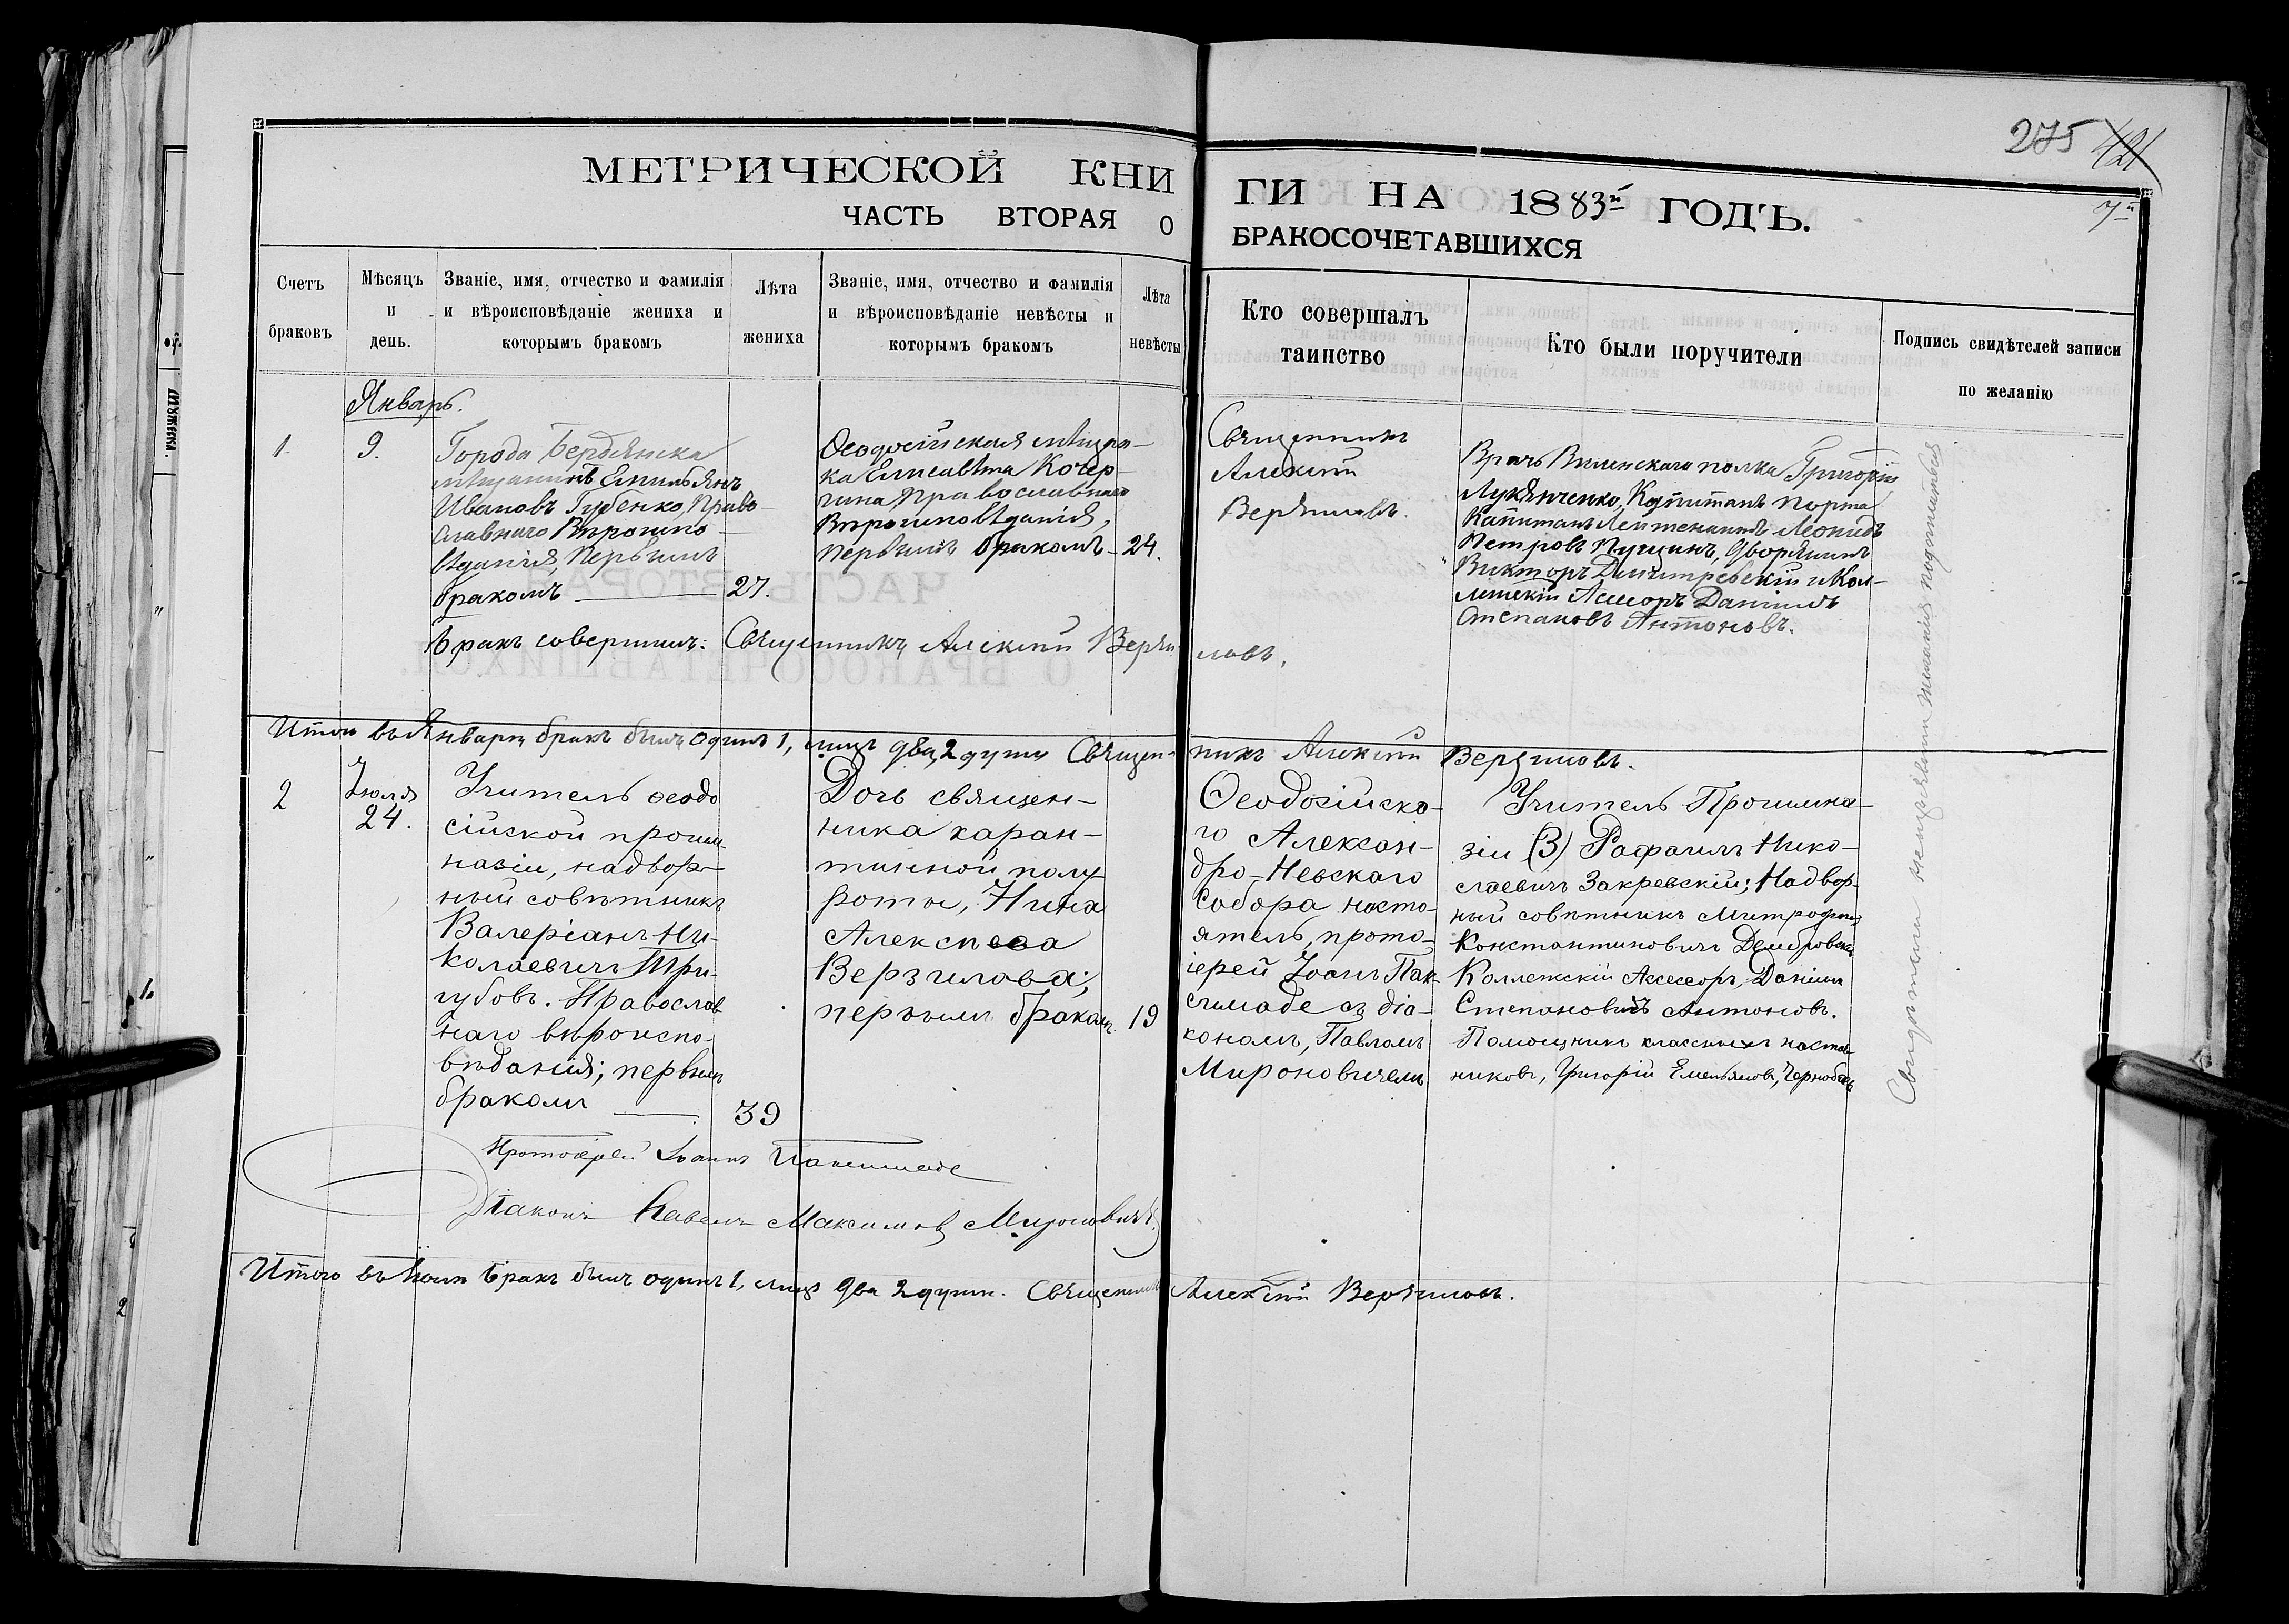 275 421
7й
МЕТРИЧЕСКОЙ КНИГИ НА 1883й ГОДЪ.
ЧАСТЬ ВТОРАЯ О БРАКОСОЧЕТАВШИХСЯ
Счетъ браковъ
Мѣсяцъ и день.
Званіе, имя, отчество и фамилія и вѣроисповѣданіе жениха и которымъ бракомъ
Лѣта жениха
Званіе, имя, отчество и фамилія и вѣроисповѣданіе невѣсты и которымъ бракомъ
Лѣта невѣсты
Кто совершалъ таинство
Кто были поручители
Подпись свидѣтелей записи по желанію
Январь.
1
9.
Города Бердянска
мѣщанинъ Емильянъ
Ивановъ Губенко, Право
славнаго Вѣроиспо-
вѣданія, первымъ
бракомъ
27.
Ѳеодосійская мѣщан-
ка Елисавѣта Кочер-
гина, православнаго
Вѣроисповѣданія,
первымъ бракомъ
24.
Священникъ
Алексій
Верзиловъ.
Врачъ Виленскаго полка Григорій
Лукьянченко, Капитанъ порта
Капитанъ Лейтенантъ Леонидъ
Петровъ Пущинъ, дворянинъ
Викторъ Димитревскій и Кол-
лежскій Асессоръ Даніилъ
Степановъ Антоновъ.
Бракъ совершилъ: Священникъ Алексій Верзиловъ.
Свидѣтели не изъявили желанія подписаться
Итого въ Январѣ бракъ былъ одинъ 1, лицъ два, 2 души Священникъ Алексій Верзиловъ.
2
Іюля
24.
Учитель ѳеодо
сійской прогим-
назіи, надвор-
ный совѣтникъ
Валеріанъ Ни-
колаевичъ Три-
губовъ. Православ
наго вѣроиспо-
вѣданія; первымъ
бракомъ
39
Дочь священ-
ника каран-
тинной полу-
роты, Нина
Алексѣева
Верзилова;
первымъ бракомъ.
19
Ѳеодосійска-
го Алексан-
дро-Невскаго
Собора насто-
ятель, прото-
іерей Іоаннъ Пак-
симаде съ діа-
кономъ, Павломъ
Мироновичемъ
Учитель Прогимна-
зіи (3) Рафаилъ Нико-
лаевичъ Закревскій; Надвор-
ный совѣтникъ Митрофанъ
Константиновичъ Дембровскій
Коллежскій Асессоръ, Даніилъ
Степановичъ Антоновъ.
Помощникъ классныхъ настав-
никовъ, Григорій Емельяновъ, Чернобаевъ
Протоіерей Іоаннъ Паксимаде
Діаконъ Павелъ Максимовъ Мироновичъ
Итого въ Іюлѣ бракъ былъ одинъ 1, лицъ два 2 души. Священникъ Алексій Верзиловъ.